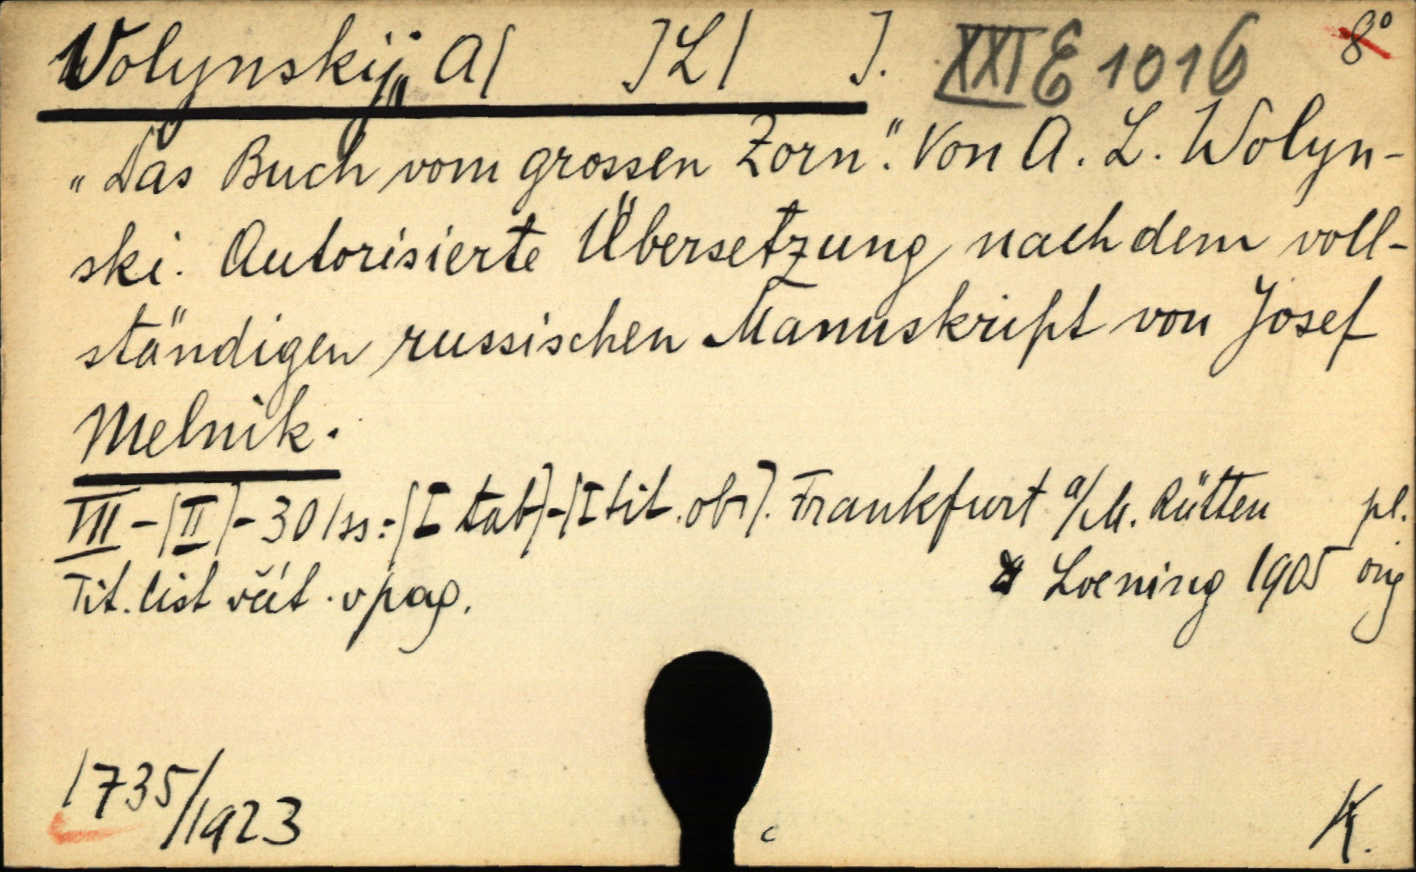 Wolynskij, A[ ]L[ ]. XXI E 1016 8°
„Das Buch vom grossen Zorn". Von A. L. Wolyn-
ski. Autorisierte Übersetzung nach dem voll-
ständigen russischen Manuskript von Josef
Melnik.
VIII-[II]-301 ss.-[I tab]-[I tit. obr]. Frankfurt a/M. Rütten pl.
Tit. list včít. v pag. & Loening 1905 orig
1735/1923
c K.